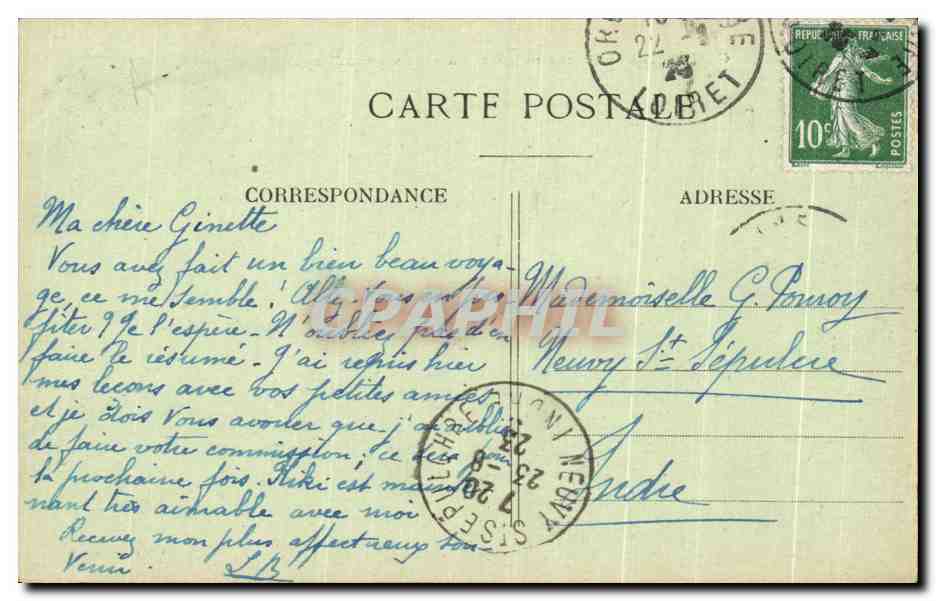 CARTE POSTALE
CORRESPONDANCE
ADRESSE
REPUBLIQUE FRANÇAISE
10c
POSTES
LOIRET
22
LOIRET
Ma chère Ginette
Vous avez fait un bien beau voya-
ge, ce me semble! Allez-vous en pro
fiter ?? Je l'espère - N'oubliez pas d'en
faire le résumé - J'ai repris hier
mes leçons avec vos petites amies
et je dois vous avouer que j'ai oublié
de faire votre commission; ce sera pour
la prochaine fois. Kiki est mainte
nant très aimable avec moi
Recevez mon plus affectueux sou-
venir.
LB
Mademoiselle G. Pouroy
Neuvy St Sépulcre
Indre
NEUVY ST SEPULCHRE
7 20
23 - 8
23
CARTEPHIL